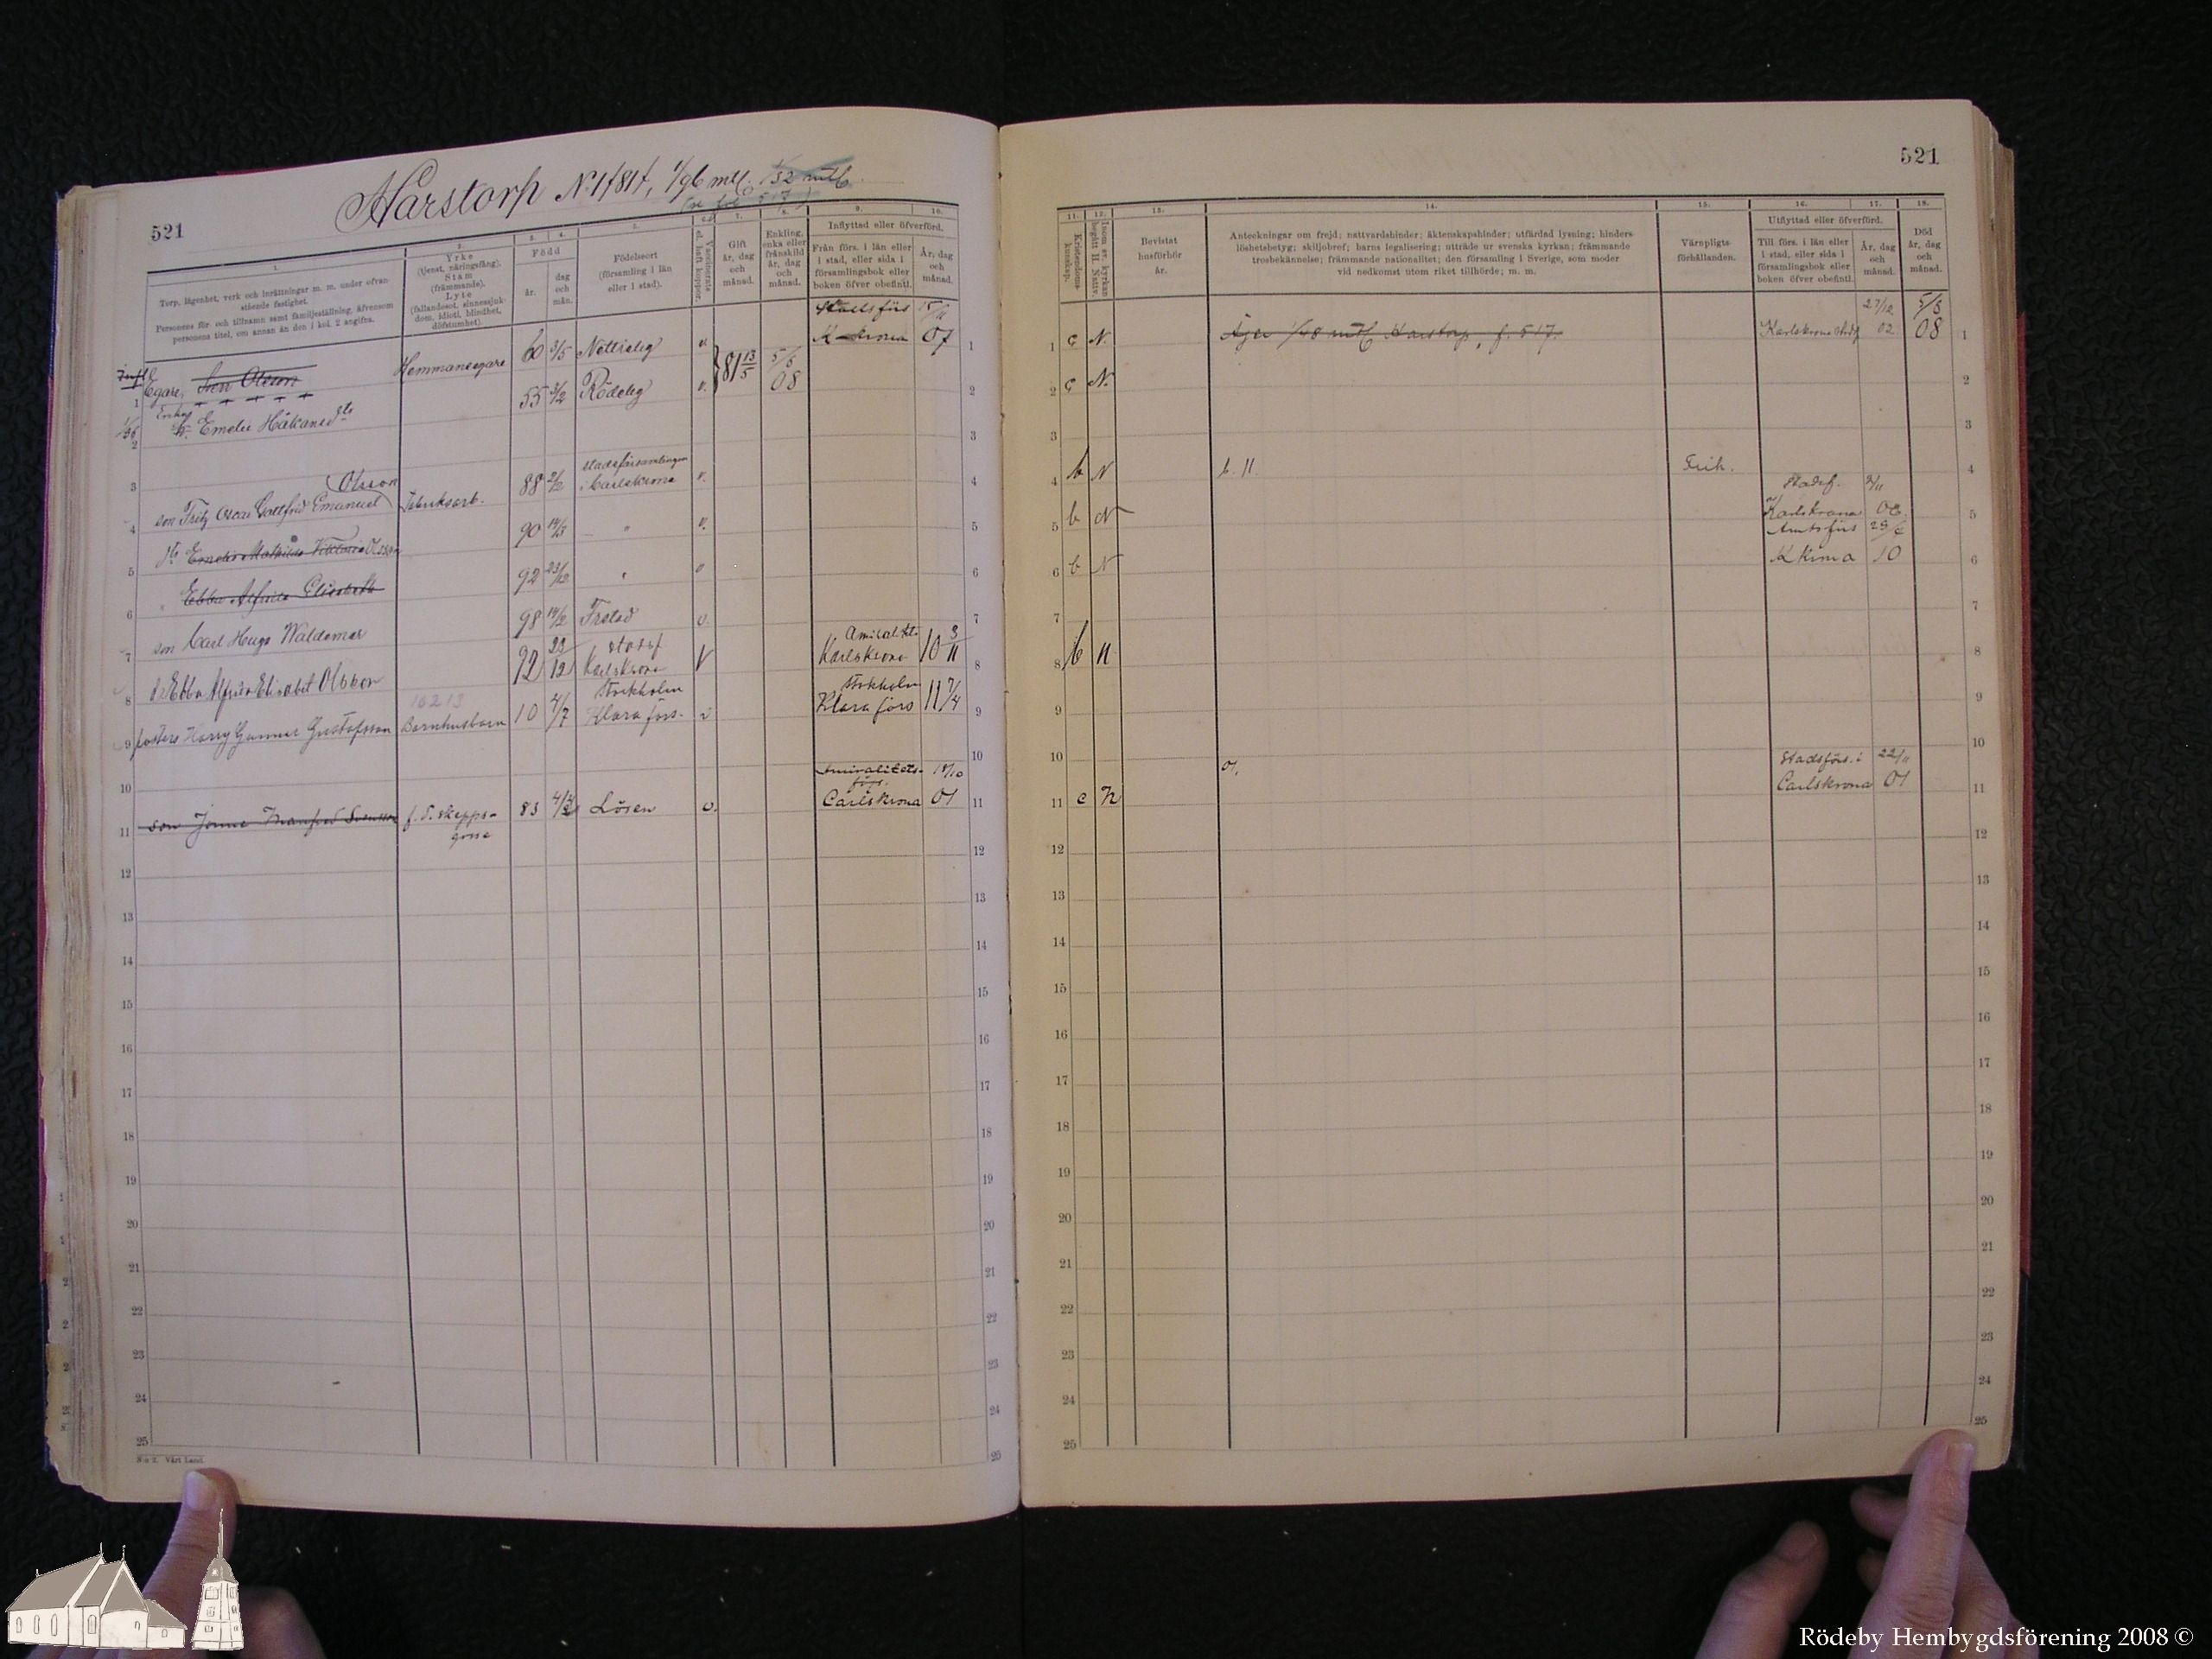 521
Harstorp No 1781, 1/96 mtl. 1/32 mtl.
(se fol 517)
1.
Torp, lägenhet, verk och inrättningar m. m. under ofvanstående fastighet.
Personens för- och tillnamn samt familjeställning, äfvensom
personens titel, om annan än den i kol. 2 angifna.
2.
Yrke
(tjenst, näringsfång).
Stam
(främmande).
Lyte
(fallandesot, sinnessjukdom, idioti, blindhet,
döfstumhet).
3. 4.
Född
år. dag och mån.
5.
Födelseort
(församling i län
eller i stad).
Vaccinerats el. haft koppor.
7.
Gift
år, dag
och
månad.
8.
Enkling,
enka eller
frånskild
år, dag
och
månad.
9. 10.
Inflyttad eller öfverförd.
Från förs. i län eller
i stad, eller sida i
församlingsbok eller
boken öfver obefintl.
År, dag
och
månad.
Egare, Sven Olsson Hemmansegare 60 3/5 Nättraby v. 81 13/5 5/5 08 Stadsförs K-krona 15/11 07
Enka
h. Emelie Håkansdtr 55 3/2 Rödeby v.
Olsson
son Fritz Oscar Gottfrid Emanuel Fabriksarb. 88 2/2 stadsförsamlingen i Carlskrona v.
dtr Emelie Mathilda Viktoria Olsson 90 14/5 " v.
" Ebba Alfrida Elisabeth 92 23/12 " v
son Carl Hugo Waldemar 98 14/2 Frstad v.
d. Ebba Alfrida Elisabet Olsson 92 23/12 stadsf Karlskrona V Amiralit. Karlskrona 10 3/11
fosters. Harry Gunnar Gustafsson 16213 Barnhusbarn 10 4/7 Stockholm Klara förs. v Stockholm Klara förs 11 7/4
son Jonne Manfred Svensson f. d. skepps-
gosse 83 Lösen v. Amiralitets-
förs. Carlskrona 18/10 01
No 2. Vårt Land.
521
11.
Kristendomskunskap.
12.
13.
Bevistat
husförhör
år.
14.
Anteckningar om frejd; nattvardshinder; äktenskapshinder; utfärdad lysning; hinderslöshetsbetyg; skiljobref; barns legalisering; utträde ur svenska kyrkan; främmande
trosbekännelse; främmande nationalitet; den församling i Sverige, som moder
vid nedkomst utom riket tillhörde; m. m.
15.
Värnpligtsförhållanden.
16. 17.
Utflyttad eller öfverförd.
Till förs. i län eller
i stad, eller sida i
församlingsbok eller
boken öfver obefintl.
År, dag
och
månad.
18.
Död
år, dag
och
månad.
1 c N. Äger 1/48 mtl Harstorp, f. 517. Karlskrona stadsf 27/12 02 5/5 08
2 c N.
4 b N b. 11. Frik.
5 b N Stadsf. Karlskrona 06
6 b N Amtsförs K krona 10
8 b N
10 01. Stadsförs. i 22/11
11 c N Carlskrona 01
Rödeby Hembygdsförening 2008 ©